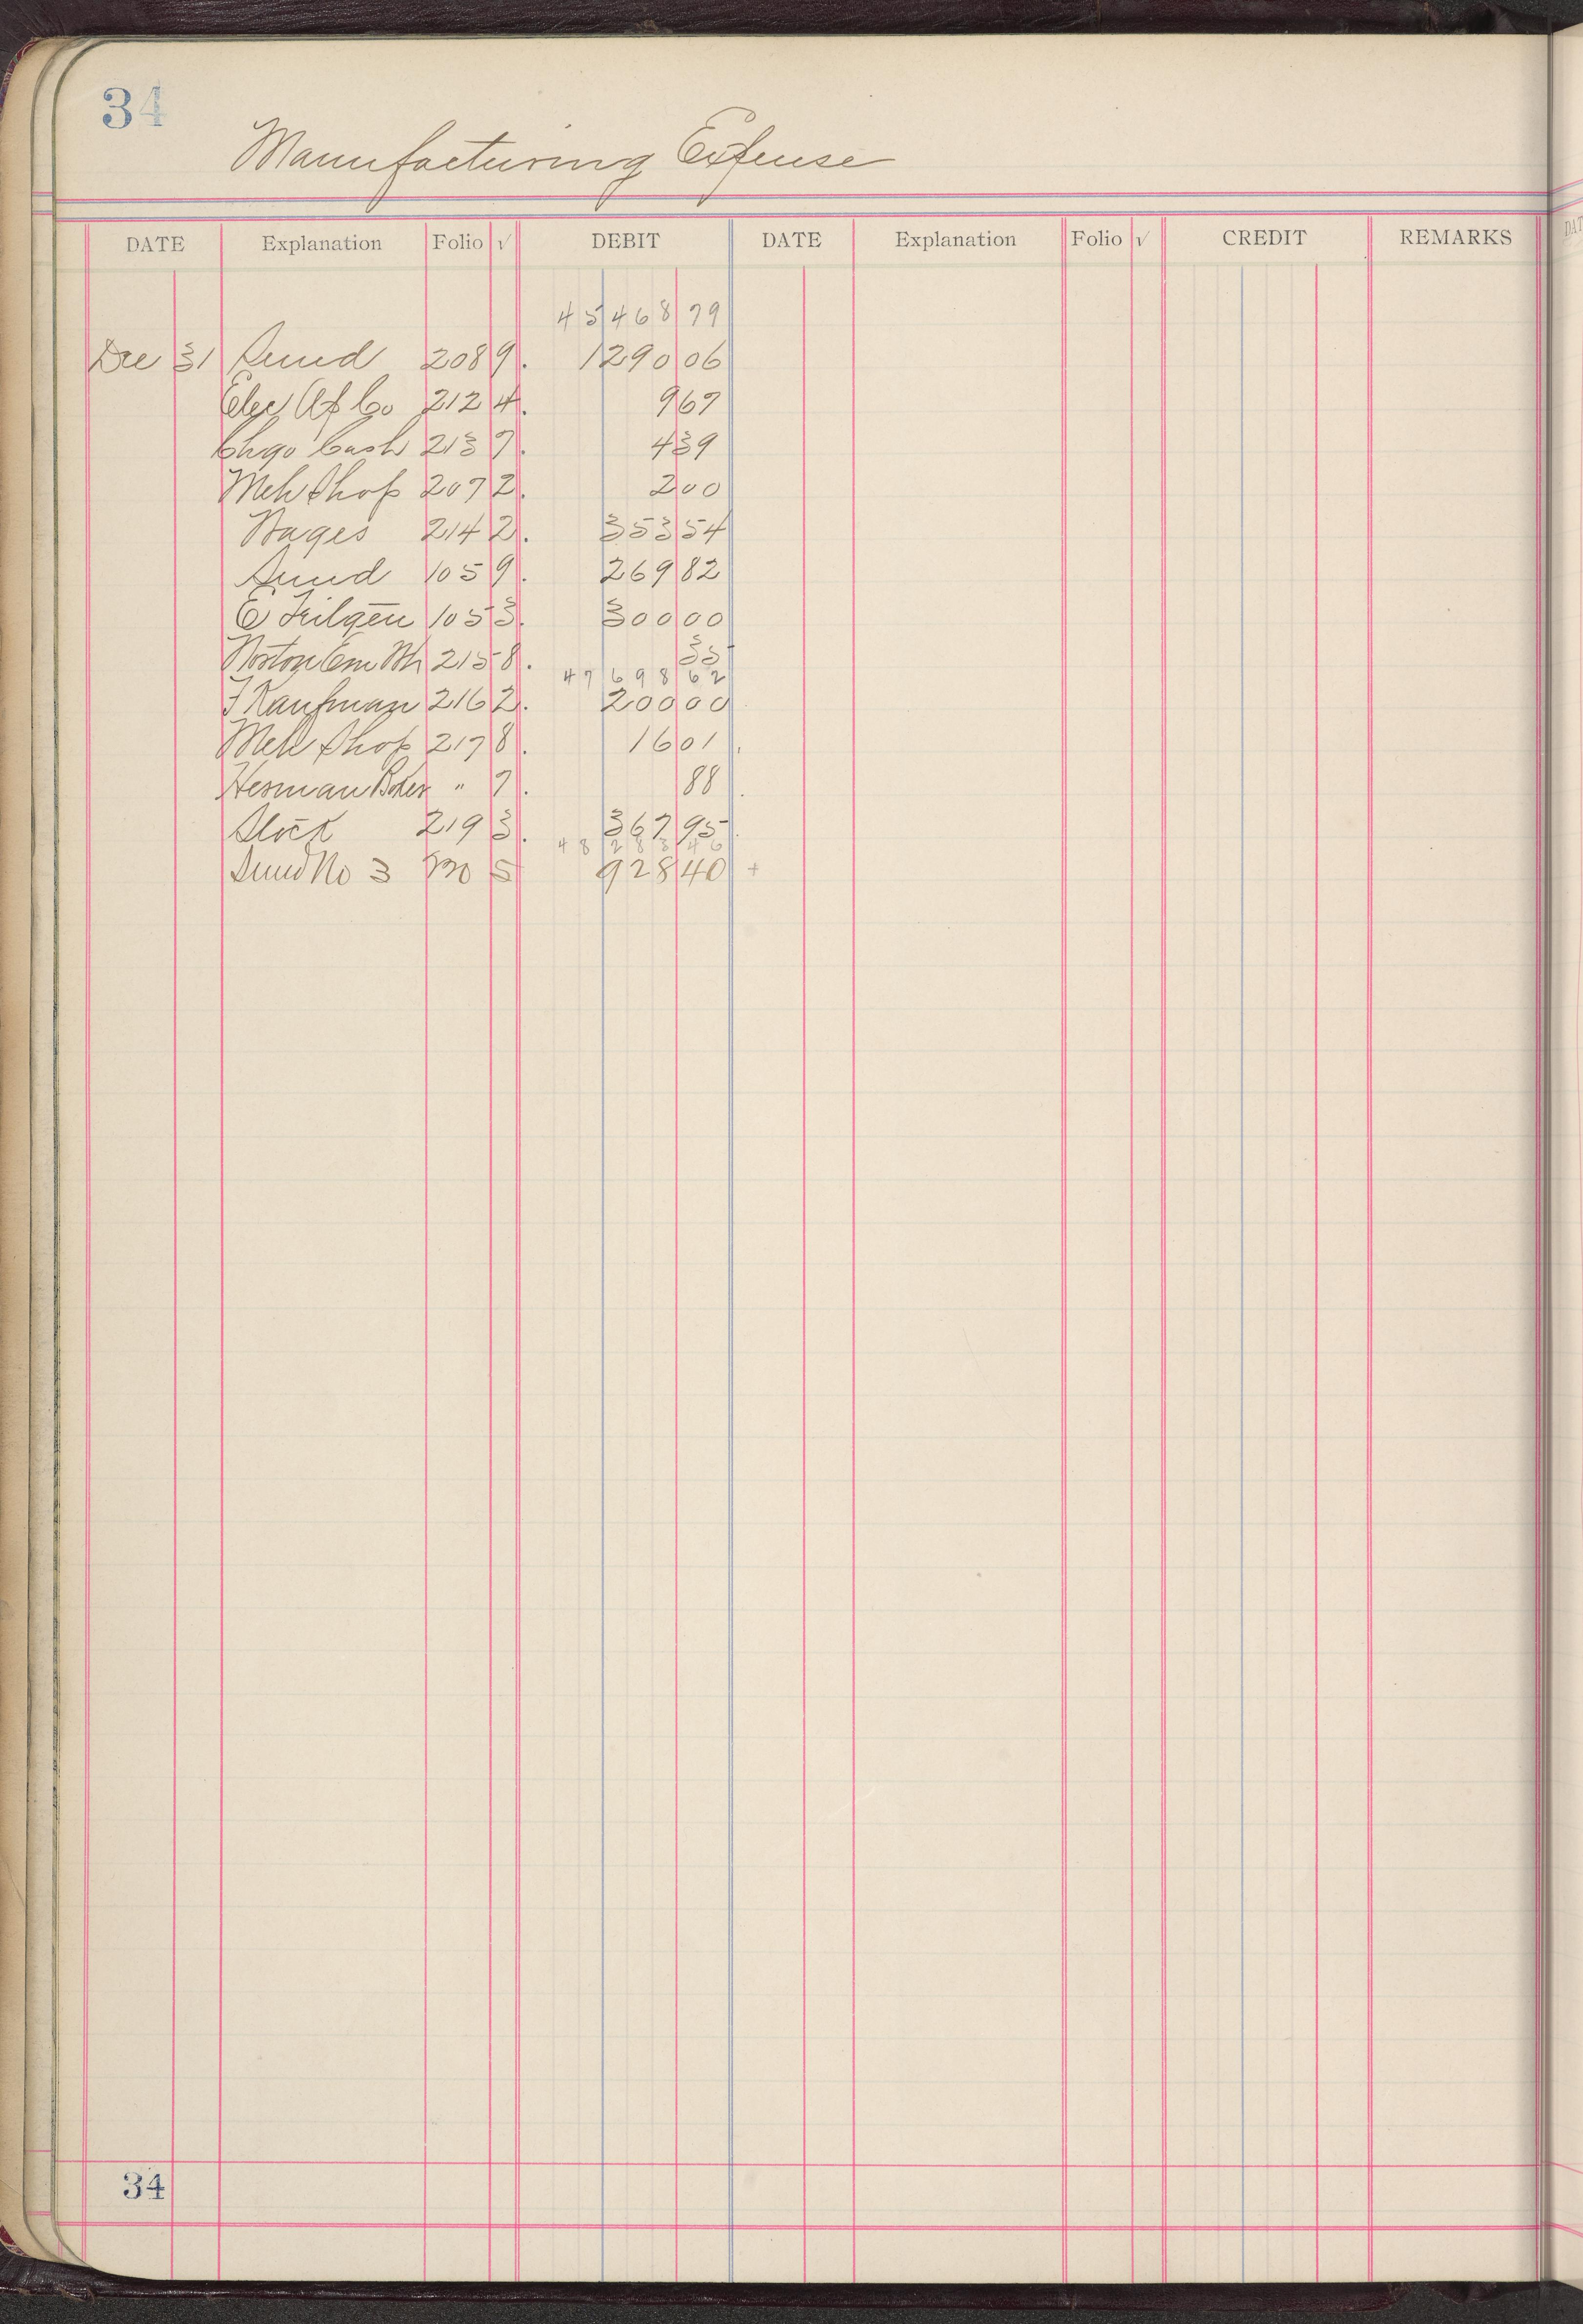 34
Manufacturing Expense
DATE Explanation Folio √ DEBIT DATE Explanation Folio √ CREDIT REMARKS
45468 79
Dec 31 Sund 2089. 1290 06
Elec Ap Co 2124. 9 67
Chgo Cash 2137. 4 39
Mch Shop 2072. 2 00
Wages 2142. 353 54
Sund 1059. 269 82
E 1053. 300 00
2158. 35
47698 62
J Kaufman 2162. 200 00
Mch Shop 2178. 16 01
Herman Boker " 7. 88
Stock 2193. 367 95
48283 46
Sund No 3 5 928 40 +
34